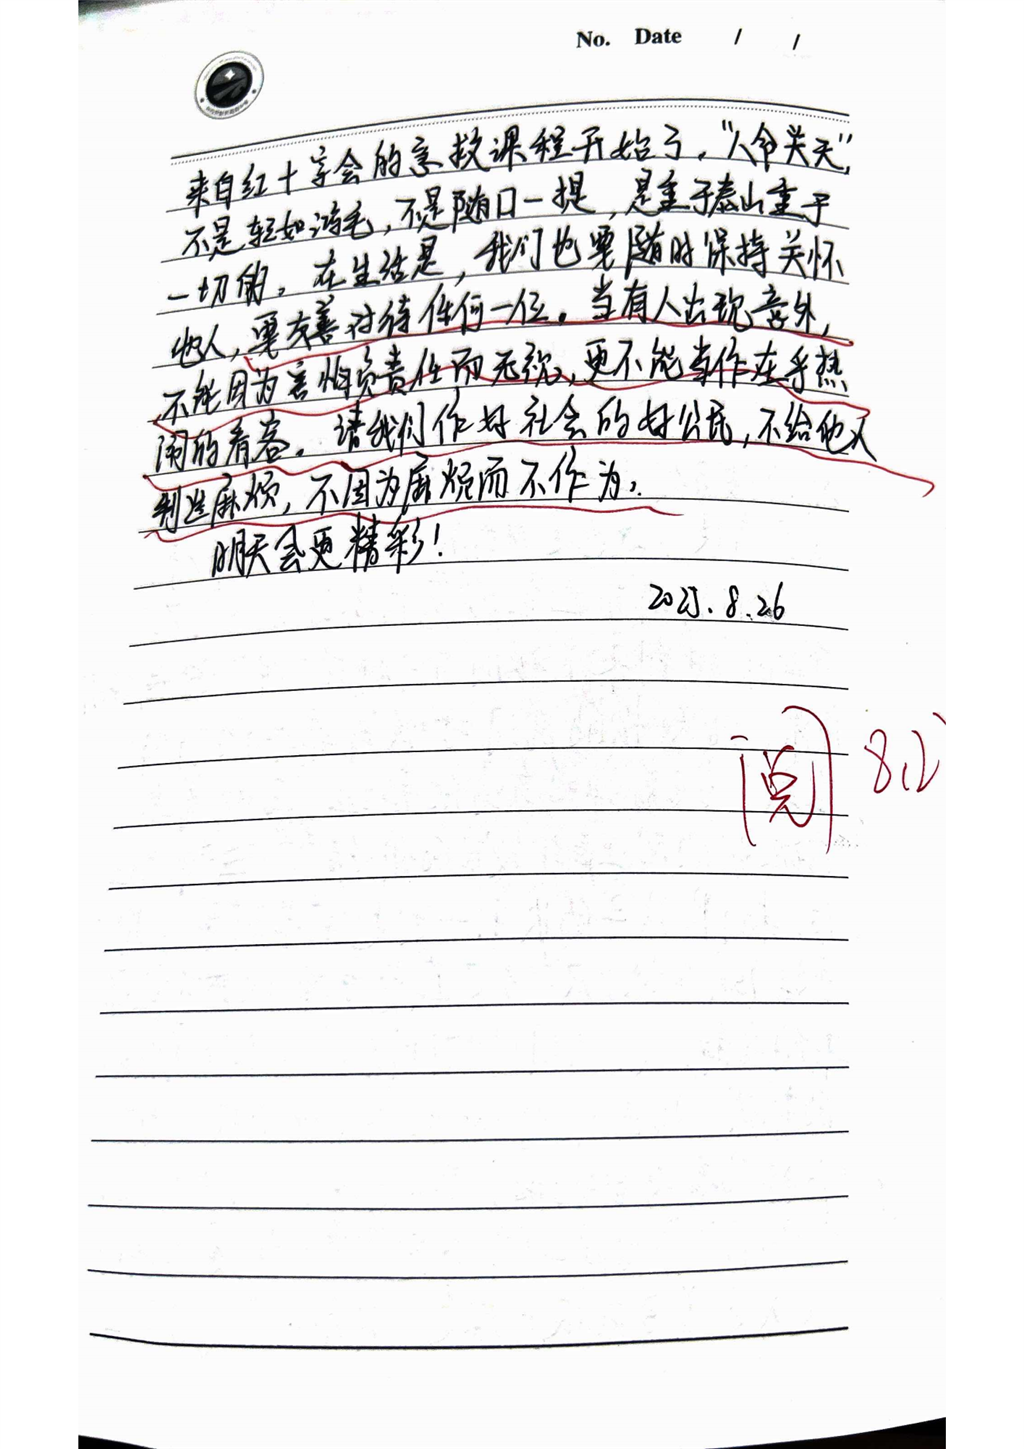 No. Date / /
来自红十字会的急救课程开始了。“人命关天”,
不是轻如鸿毛,不是随口一提,是重于泰山重于
一切的。在生活是,我们也要随时保持关怀
他人,要友善对待任何一位。当有人出现意外,
不能因为害怕负责任而无视,更不能当作在乎热
闹的看客。请我们作好社会的好公民,不给他人
制造麻烦,不因为麻烦而不作为。
明天会更精彩!
2025.8.26
阅